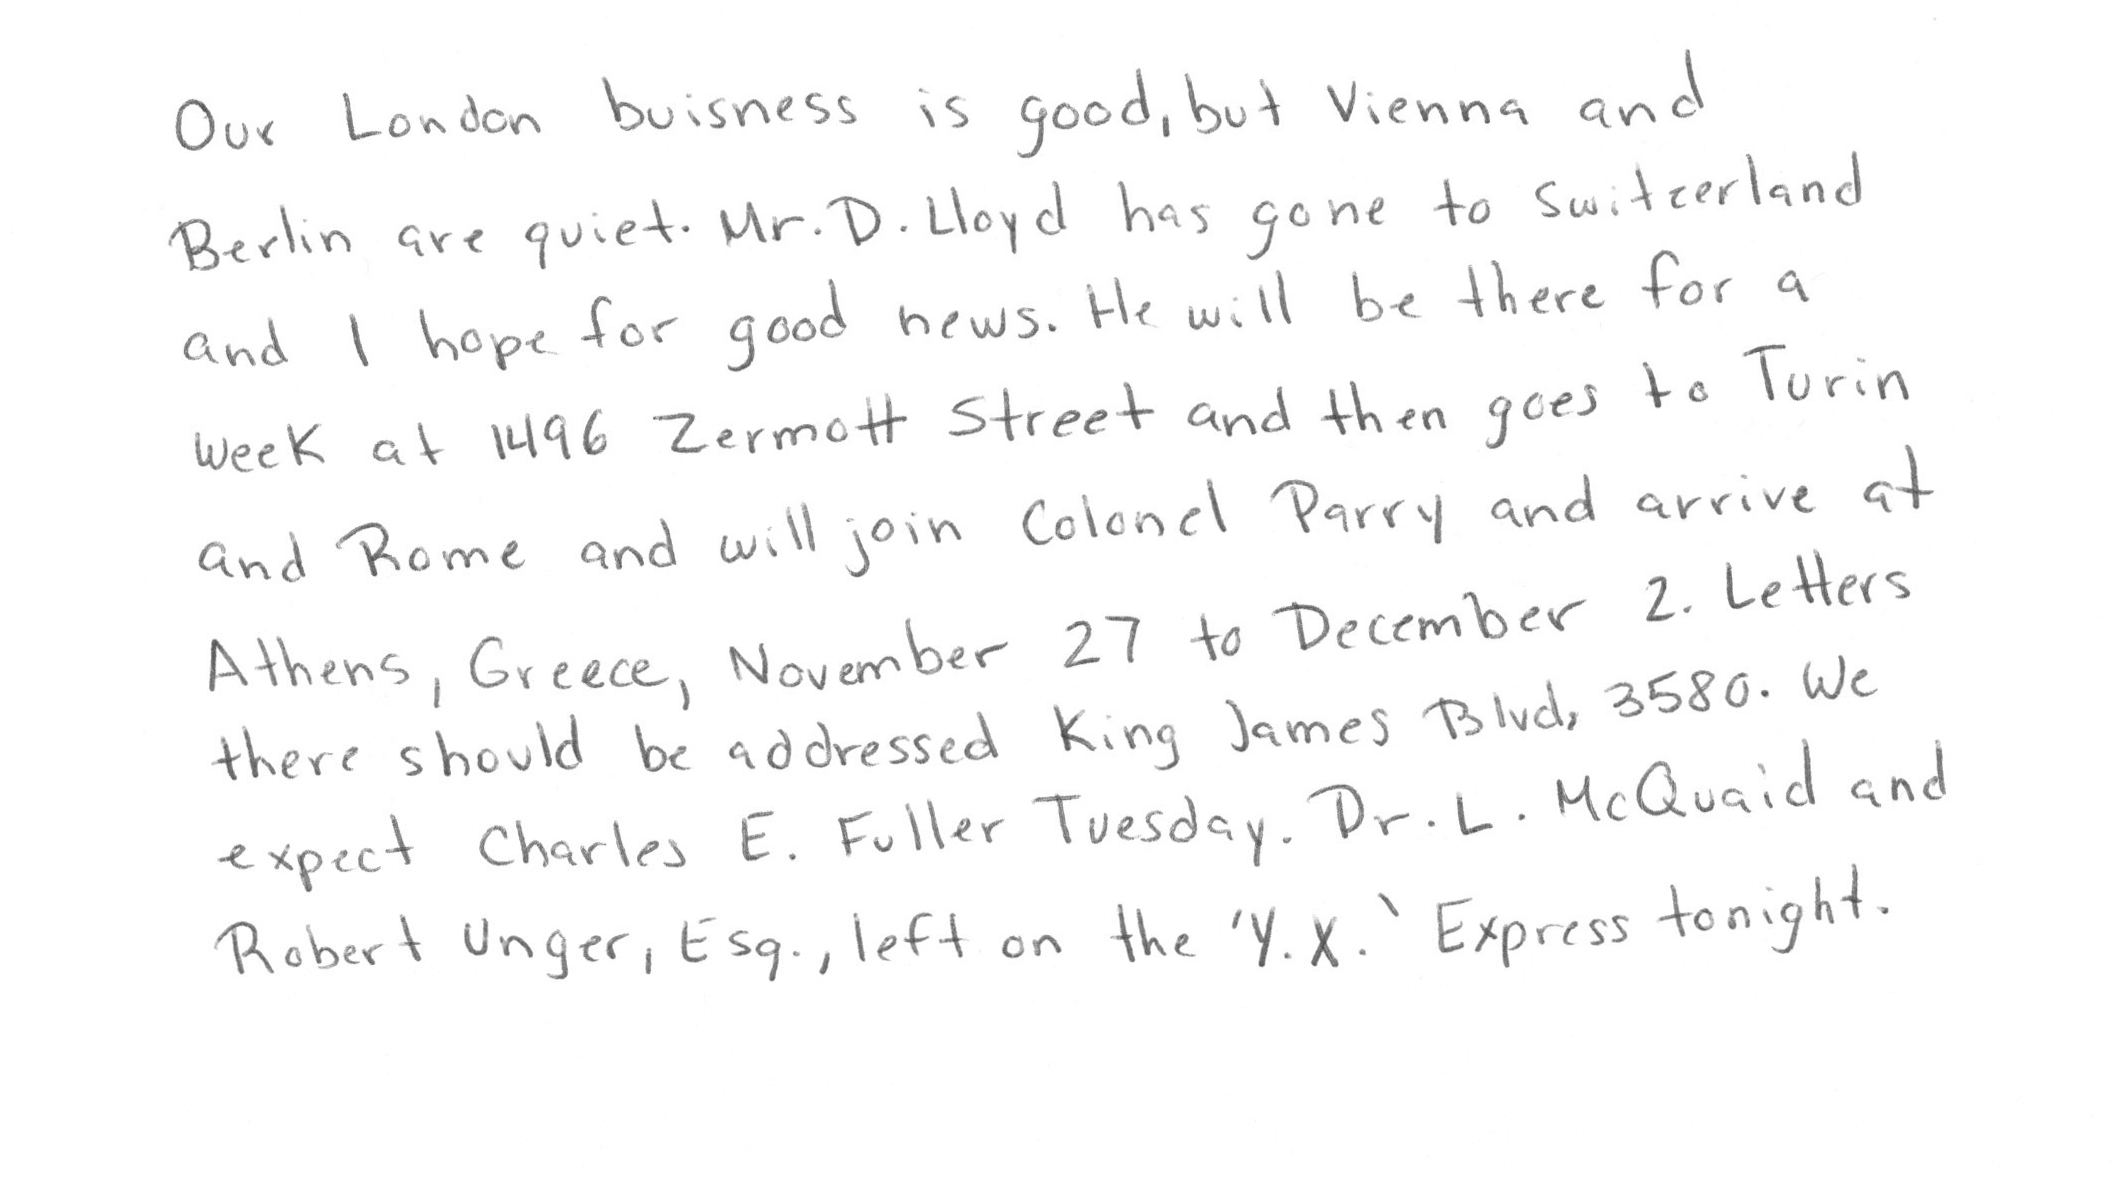 Our London buisness is good, but Vienna and
Berlin are quiet. Mr. D. Lloyd has gone to Switzerland
and I hope for good news. He will be there for a
week at 1496 Zermott Street and then goes to Turin
and Rome and will join Colonel Parry and arrive at
Athens, Greece, November 27 to December 2. Letters
there should be addressed King James Blvd, 3580. We
expect Charles E. Fuller Tuesday. Dr. L. McQuaid and
Robert Unger, Esq., left on the 'Y.X.` Express tonight.